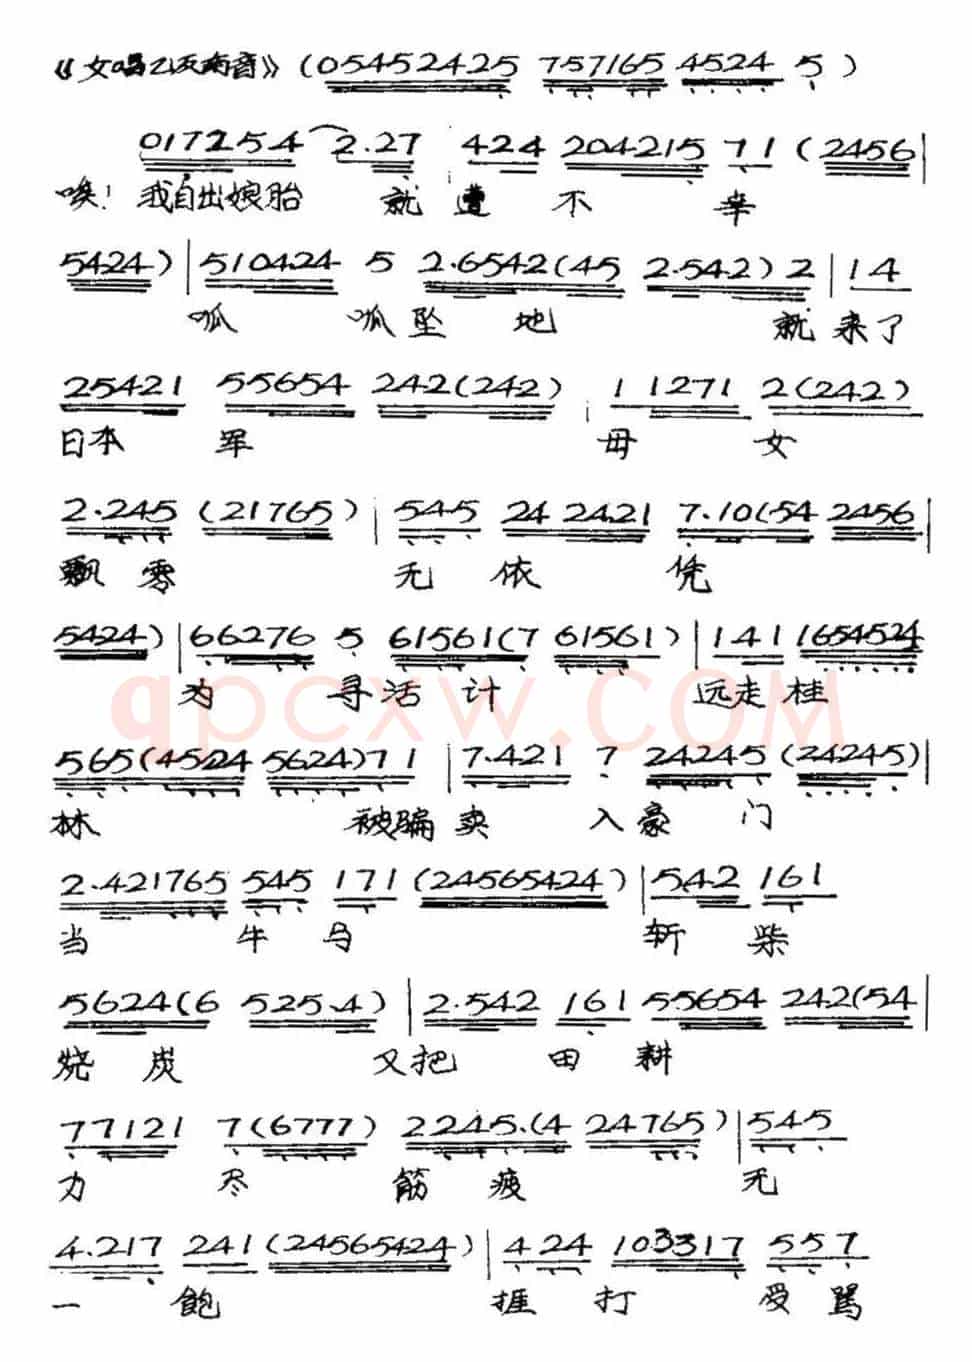 《女唱乙反南音》(05452425 757165 4524 5)
017254 2.27 424 204215 71 (2456|
唉! 我自出娘胎 就遭不幸
5424)|510424 5 2.6542(45 2.542)2|14
呱 呱坠地 就来了
25421 55654 242(242) 1 1271 2(242)
日本军 母女
2.245 (21765)|545 24 2421 7.10(54 2456|
飘零 无依凭
5424)|66276 5 61561(7 61561)|141 1654524
为 寻活计 远走桂
565(4524 5624)71|7.421 7 24245 (24245)|
林 被骗卖 入豪门
2.421765 545 171 (24565424)|542 161
当 牛马 斩柴
5624(6 525.4)|2.542 161 55654 242(54|
烧炭 又把田耕
77121 7(6777) 2245.(4 24765)|545
力尽 筋疲 无
4.217 241(24565424)|424 103317 557
一 飽 捱打受骂
qpcxw.COM